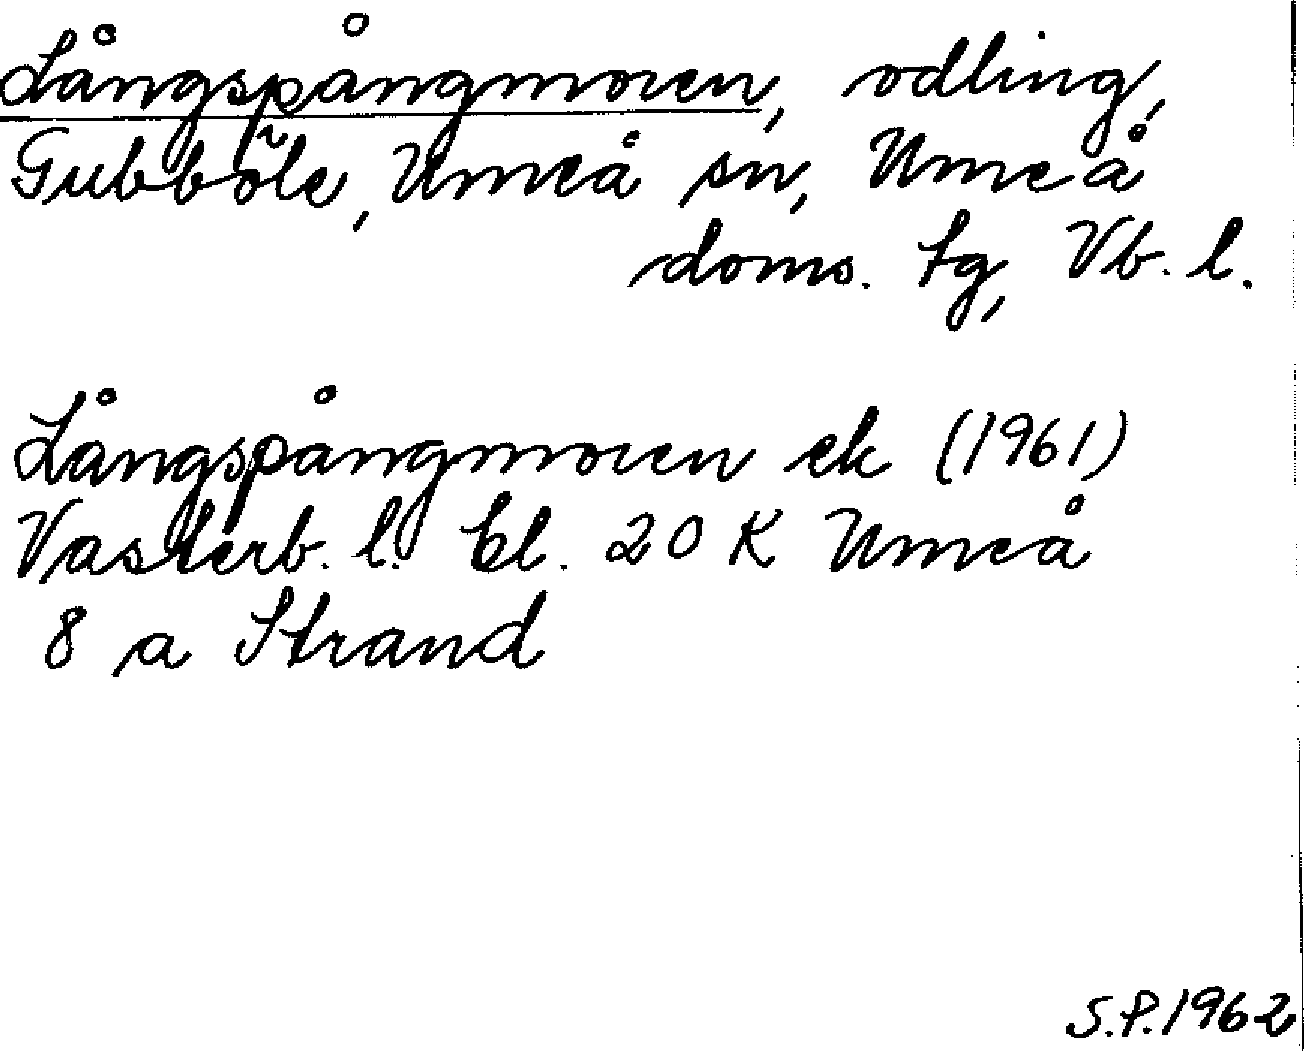 Långspångmoren, odling,
Gubböle, Umeå sn, Umeå
doms. tg, Vb. l.
Långspångmoren ek (1961)
Västerb. l. bl. 20 K Umeå
8 a Strand
S.P. 1962